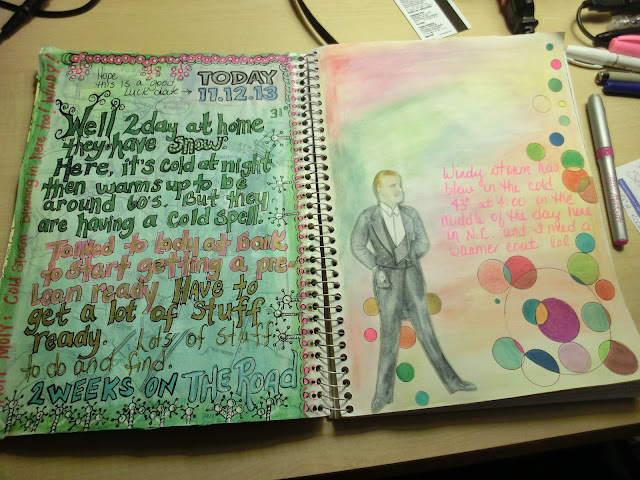 Hope
this is a good
luck date →
TODAY
11.12.13
31°
Well 2day at home
they have snow.
Here, it's cold at night
then warms up to be
around 60's. But they
are having a cold spell.
Talked to lady at Bank
to start getting a pre-
loan ready. Have to
get a lot of stuff
ready. Lots of stuff
to do and find.
2 WEEKS ON THE ROAD
Moly: Cold Storm blowing in here too! WINDY!
Windy storm has
blew in the cold
43° at 4:00 in the
middle of the day here
in N.C. and I need a
warmer coat lol